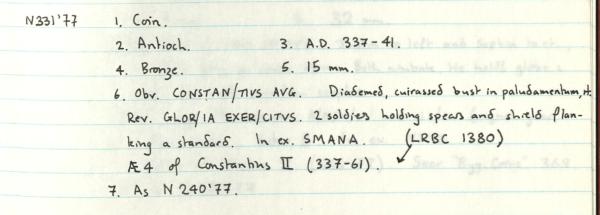 N331'77 1. Coin.
2. Antioch. 3. A.D. 337-41.
4. Bronze. 5. 15 mm.
6. Obv. CONSTAN/TIVS AVG. Diademed, cuirassed bust in paludamentum, rt.
Rev. GLOR/IA EXER/CITVS. 2 soldies holding spears and shield flan-
king a standard. In ex. SMANA. (LRBC 1380)
Æ 4 of Constantius II (337-61).
7. As N 240'77.